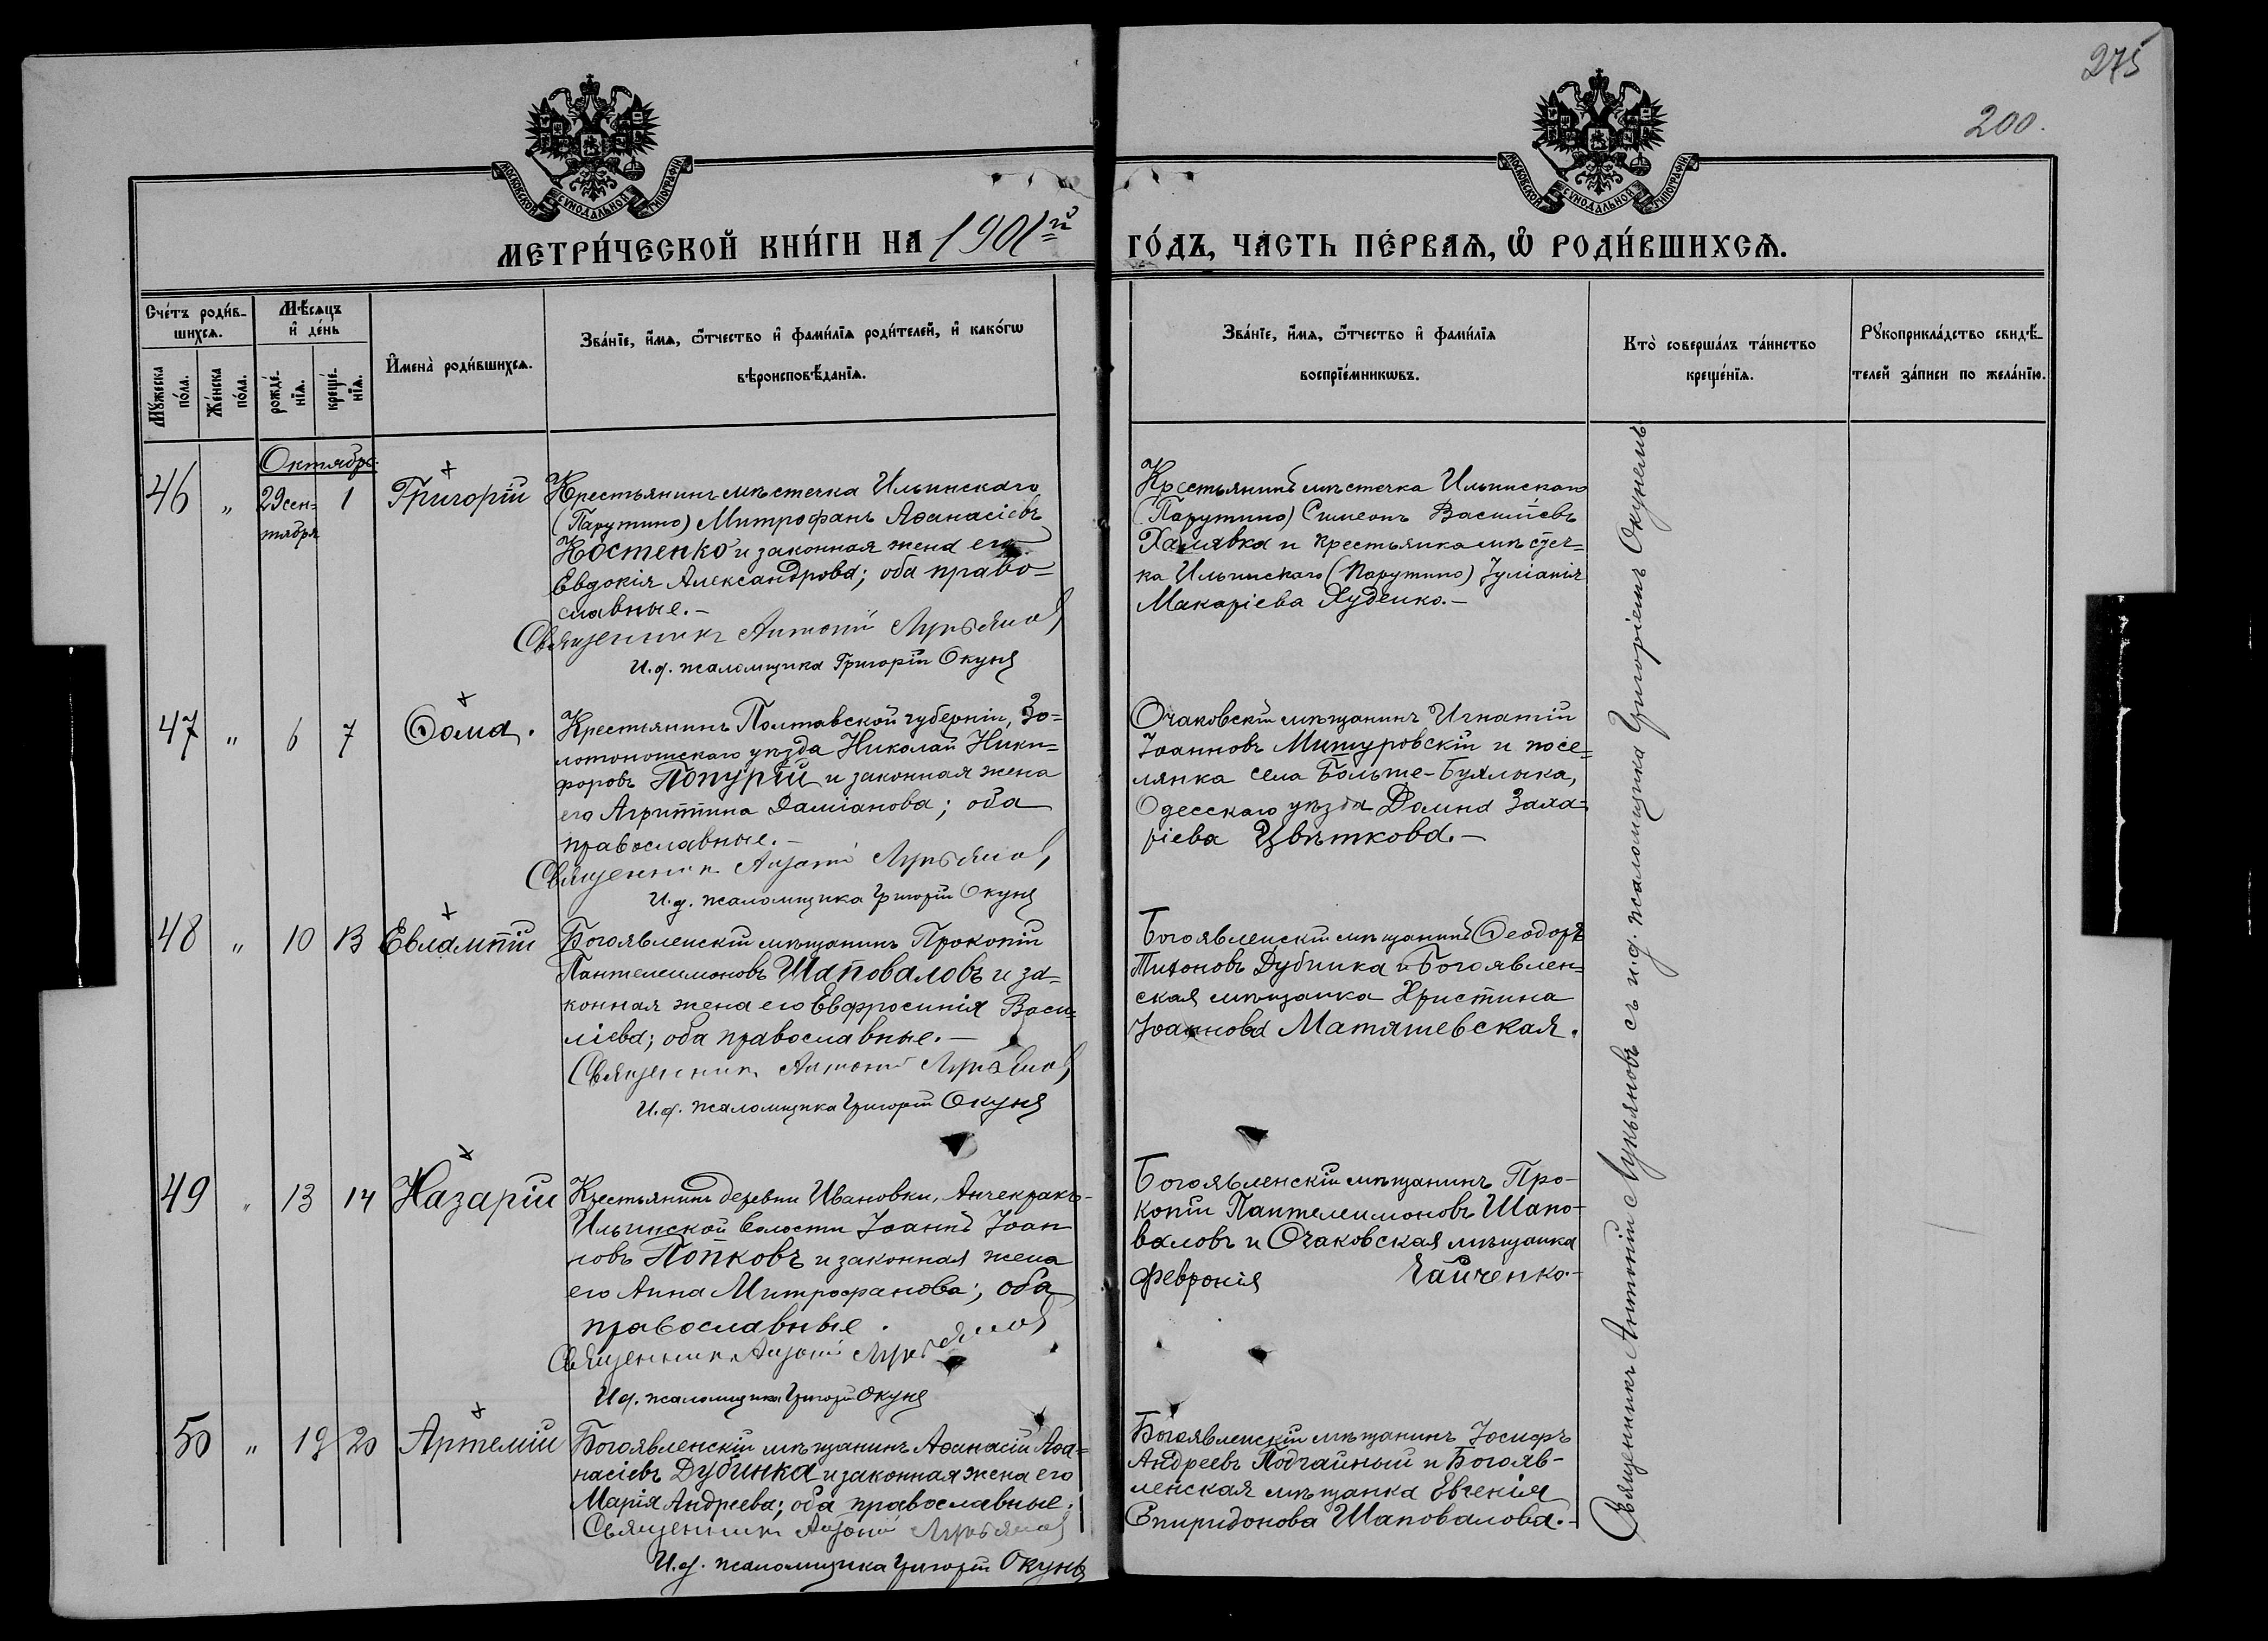 275
200.
МОСКОВСКОЙ СѴНОДАЛЬНОЙ ТИПОГРАФІИ
МОСКОВСКОЙ СѴНОДАЛЬНОЙ ТИПОГРАФІИ
МЕТРИ́ЧЕСКОЙ КНИ́ГИ НА 1901й ГО́ДЪ, ЧА́СТЬ ПЕ́РВАѦ, Ѡ҆ РОДИ́ВШИХСѦ.
Сче́тъ роди́в-
шихсѧ.
Мꙋ́жеска
по́ла.
Же́нска
по́ла.
Мѣ́сѧцъ
и҆ де́нь
рожде́-
нїѧ.
креще́-
нїѧ.
И҆мена̀ роди́вшихсѧ.
Зва́нїе, и҆́мѧ, ѻ҆́тчество и҆ фами́лїѧ роди́телей, и҆ како́гѡ
вѣроисповѣ́данїѧ.
Зва́нїе, и҆́мѧ, ѻ҆́тчество и҆ фами́лїѧ
воспрїе́мникѡвъ.
Кто̀ соверша́лъ та́инство
креще́нїѧ.
Рꙋкоприкла́дство свидѣ́-
телей за́писи по жела́нїю.
Октябрь.
46 " 29 сен=
тября 1 Григорій
Крестьянинъ мѣстечка Ильинскаго
(Парутино) Митрофанъ Аѳанасіевъ
Костенко и законная жена его
Евдокія Александрова; оба право=
славные.—
Священникъ Антоній Лукьянов
И.д. псаломщика Григорій Окунь
Крестьянинъ мѣстечка Ильинскаго
(Парутино) Симеонъ Василіевъ
Халявка и крестьянка мѣстеч=
ка Ильинскаго (Парутино) Іуліанія
Макаріева Худенко.—
47 " 6 7 Ѳома.
Крестьянинъ Полтавской губерніи, Зо=
лотоношскаго уѣзда Николай Ники=
форовъ Попурій и законная жена
его Агриппина Даміанова; оба
православные.—
Священникъ Антоній Лукьянов
И.д. псаломщика Григорій Окунь
Очаковскій мѣщанинъ Игнатій
Іоанновъ Митуровскій и посе=
лянка села Больше-Буялыка,
Одесскаго уѣзда Домна Заха=
ріева Цвѣткова.—
48 " 10 13 Евлампій
Богоявленскій мѣщанинъ Прокопій
Пантелеимоновъ Шаповаловъ и за=
конная жена его Евфросинія Васи=
ліева; оба православные.—
Священникъ Антоній Лукьянов
И.д. псаломщика Григорій Окунь
Богоявленскій мѣщанинъ Ѳеодоръ
Тихоновъ Дубинка и Богоявлен=
ская мѣщанка Христина
Іоаннова Матяшевская.
49 " 13 14 Назарій
Крестьянинъ деревни Ивановки, Анчекракъ-
Ильинской волости Іоаннъ Іоан
новъ Попковъ и законная жена
его Анна Митрофанова; оба
православные.
Священникъ Антоній Лукьянов
И.д. псаломщика Григорій Окунь
Богоявленскій мѣщанинъ Про-
копій Пантелеимоновъ Шапо-
валовъ и Очаковская мѣщанка
Февронія Яйченко.—
50 " 19 20 Артемій
Богоявленскій мѣщанинъ Аѳанасій Аѳа=
насіевъ Дубинка и законная жена его
Марія Андреева; оба православные.
Священникъ Антоній Лукьянов
И.д. псаломщика Григорій Окунь
Богоявленскій мѣщанинъ Іосифъ
Андреевъ Подгайный и Богояв-
ленская мѣщанка Евгенія
Спиридонова Шаповалова.—
Священникъ Антоній Лукьяновъ съ и.д. псаломщика Григоріемъ Окунемъ